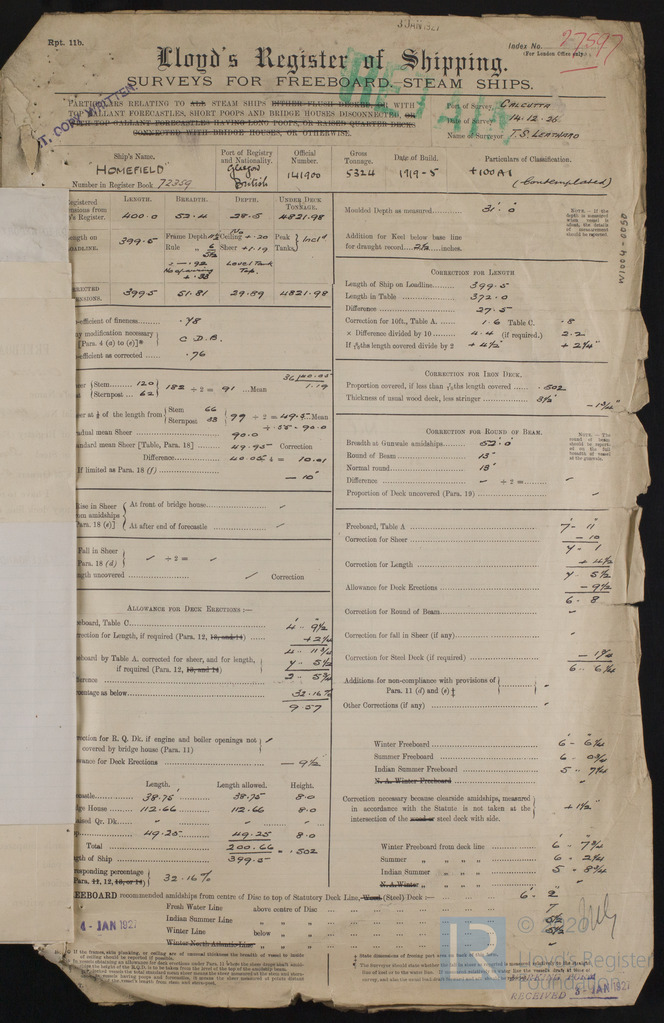 3 JAN 1927
Rpt. 11b.
Index No. 27597
(For London Office only)
Lloyd's Register of Shipping.
SURVEYS FOR FREEBOARD.—STEAM SHIPS.
PARTICULARS RELATING TO ALL STEAM SHIPS EITHER FLUSH DECKED, OR WITH
TOP GALLANT FORECASTLES, SHORT POOPS AND BRIDGE HOUSES DISCONNECTED, OR
WITH TOP GALLANT FORECASTLES HAVING LONG POOPS, OR RAISED QUARTER DECKS
CONNECTED WITH BRIDGE HOUSES, OR OTHERWISE.
RETAIN
Port of Survey CALCUTTA
Date of Survey 14.12.26
Name of Surveyor T.S. LEATHARD
Ship's Name. Port of Registry and Nationality. Official Number. Gross Tonnage. Date of Build. Particulars of Classification.
"HOMEFIELD" Glasgow British 141900 5324 1919-5 +100A1
(Contemplated)
Number in Register Book 72359
LENGTH. BREADTH. DEPTH. UNDER DECK TONNAGE.
400.0 52.4 28.5 4821.98
399.5 Frame Depth
399.5 51.81 29.89 4821.98
efficient of fineness .78
ny modification necessary [Para. 4 (a) to (e)]* C.D.B.
efficient as corrected .76
Stem 120
Sternpost 62
182 ÷ 2 = 91 Mean
er at ⅛ of the length from Stem 66
Sternpost 33
99 ÷ 2 = 49.5 Mean
÷ .55 = 90.0
radual mean Sheer 90.0
andard mean Sheer [Table, Para. 18] 49.95 Correction
Difference 40.05 ÷ 4 = 10.01
If limited as Para. 18 (f)
— 10"
Rise in Sheer from amidships Para. 18 (e)] At front of bridge house
At after end of forecastle
Fall in Sheer Para. 18 (d) ÷ 2 =
ngth uncovered Correction
ALLOWANCE FOR DECK ERECTIONS :—
eeboard, Table C 4 - 9½
rrection for Length, if required (Para. 12, 13, and 14) + 2¼
4 - 11¾
eeboard by Table A. corrected for sheer, and for length, if required (Para. 12, 13, and 14) 7 - 5½
2 - 5¾
centage as below 32.16%
9.57
rection for R. Q. Dk. if engine and boiler openings not covered by bridge house (Para. 11)
wance for Deck Erections — 9½
Length. Length allowed. Height.
38.75 38.75 8.0
dge House 112.66 112.66 8.0
aised Qr. Dk.
49.25 49.25 8.0
Total 200.66 = .502
ngth of Ship 399.5
responding percentage Para. 11, 12, 13, or 14) 32.16%
Moulded Depth as measured 31.0
Addition for Keel below base line
for draught record 2½ inches.
NOTE.—If the depth is measured when vessel is afloat, the details of measurement should be reported.
CORRECTION FOR LENGTH
Length of Ship on Loadline 399.5
Length in Table 372.0
Difference 27.5
Correction for 10ft., Table A. 1.6 Table C. .8
× Difference divided by 10 4.4 (if required.) 2.2
If ⁶⁄₁₀ths length covered divide by 2 + 4½" + 2¼"
CORRECTION FOR IRON DECK.
Proportion covered, if less than ⁷⁄₁₀ths length covered .502
Thickness of usual wood deck, less stringer 3½
— 1¾"
CORRECTION FOR ROUND OF BEAM.
Breadth at Gunwale amidships 52.0
Round of Beam 13"
Normal round 13"
Difference ÷ 2 =
Proportion of Deck uncovered (Para. 19)
Freeboard, Table A 7 - 11
Correction for Sheer — 10
7 - 1
Correction for Length + 4½
7 - 5½
Allowance for Deck Erections — 9½
6 - 8
Correction for Round of Beam
Correction for fall in Sheer (if any)
Correction for Steel Deck (if required) — 1¾
6 - 6¼
Additions for non-compliance with provisions of Para. 11 (d) and (e) †
Other Corrections (if any)
Winter Freeboard 6 - 6¼
Summer Freeboard 6 - 0¾
Indian Summer Freeboard 5 - 7¼
N. A. Winter Freeboard
Correction necessary because clearside amidships, measured in accordance with the Statute is not taken at the intersection of the wood or steel deck with side. + 1½"
Winter Freeboard from deck line 6 - 7¾
Summer „ „ „ „ 6 - 2¼
Indian Summer „ „ „ „ 5 - 8¾
N.A. Winter „ „ „ „
FREEBOARD recommended amidships from centre of Disc to top of Statutory Deck Line, Wood (Steel) Deck :— 6 - 2
Fresh Water Line above centre of Disc
Indian Summer Line „ „
Winter Line below „ „
Winter North Atlantic Line „ „
4 - JAN 1927
W1004-0050
© 2020
LR
Lloyd's Register
Foundation
RECEIVED 3 - JAN 1927